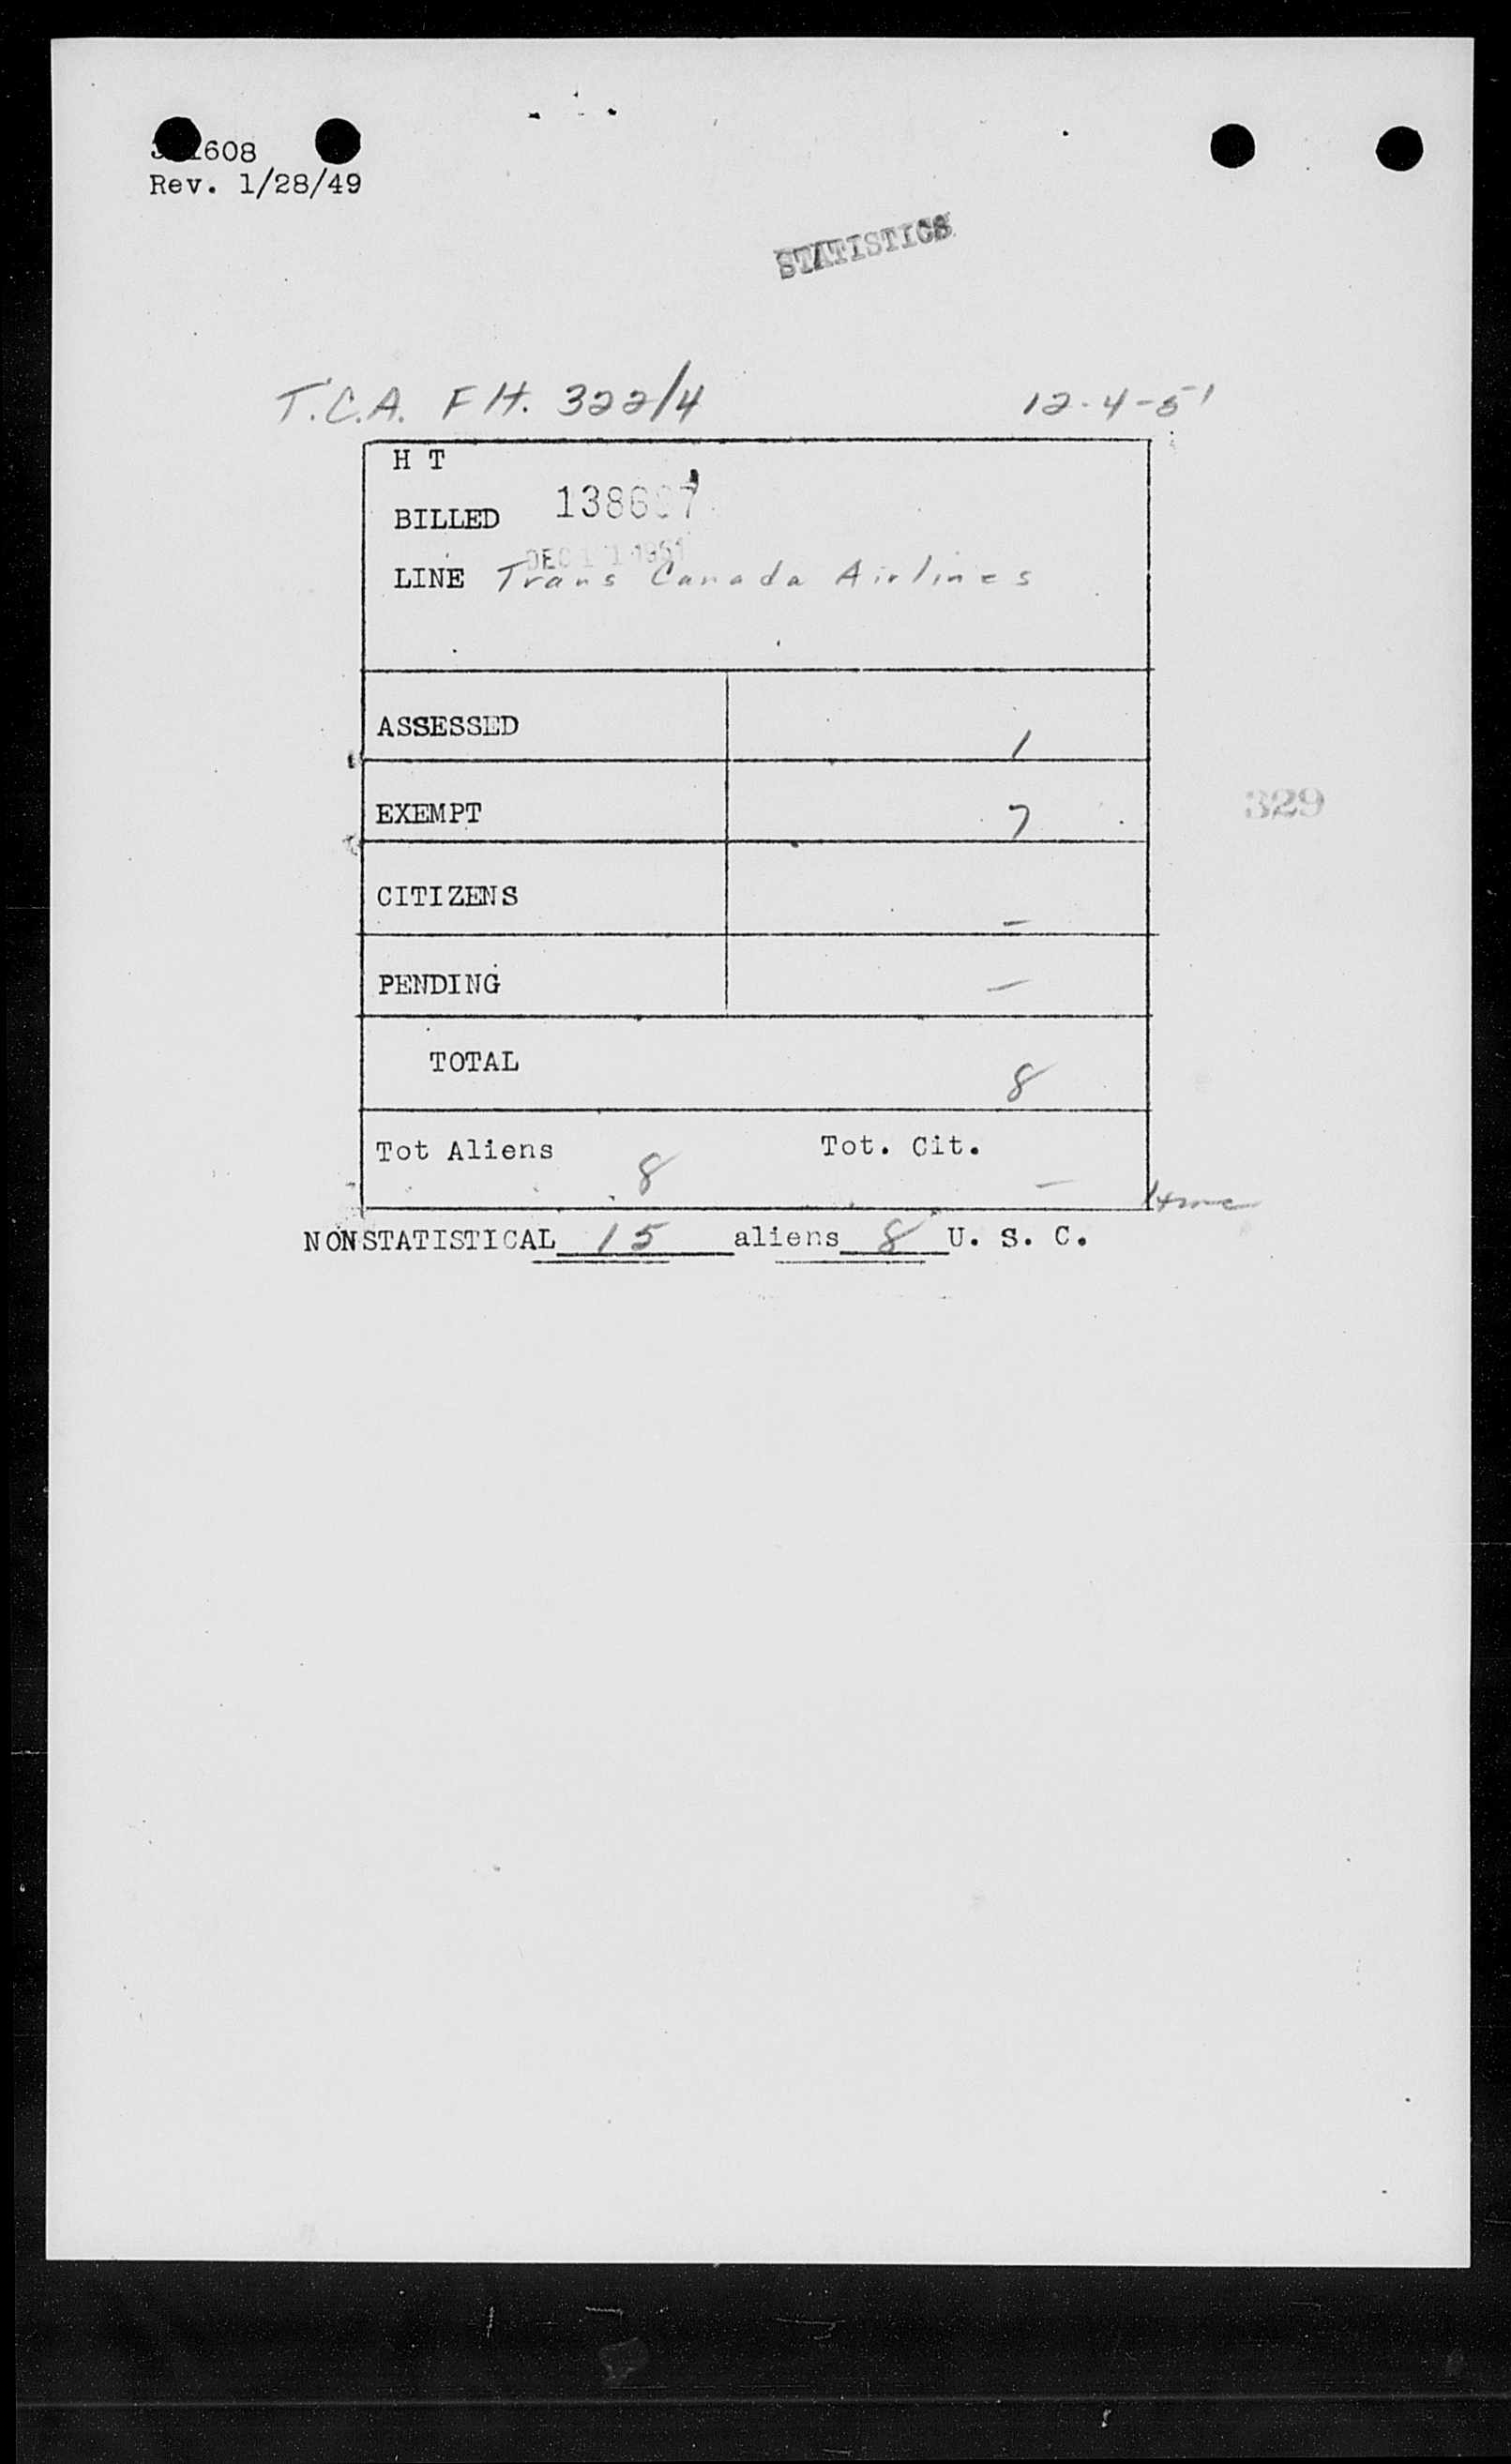 608
Rev. 1/28/49
STATISTICS
T.C.A. Flt. 322/4 12-4-51
H T
BILLED
DEC 1951
LINE Trans Canada Airlines
ASSESSED 1
EXEMPT 7
329
CITIZENS -
PENDING -
TOTAL 8
Tot Aliens 8 Tot. Cit. -
NONSTATISTICAL 15 aliens 8 U. S. C.